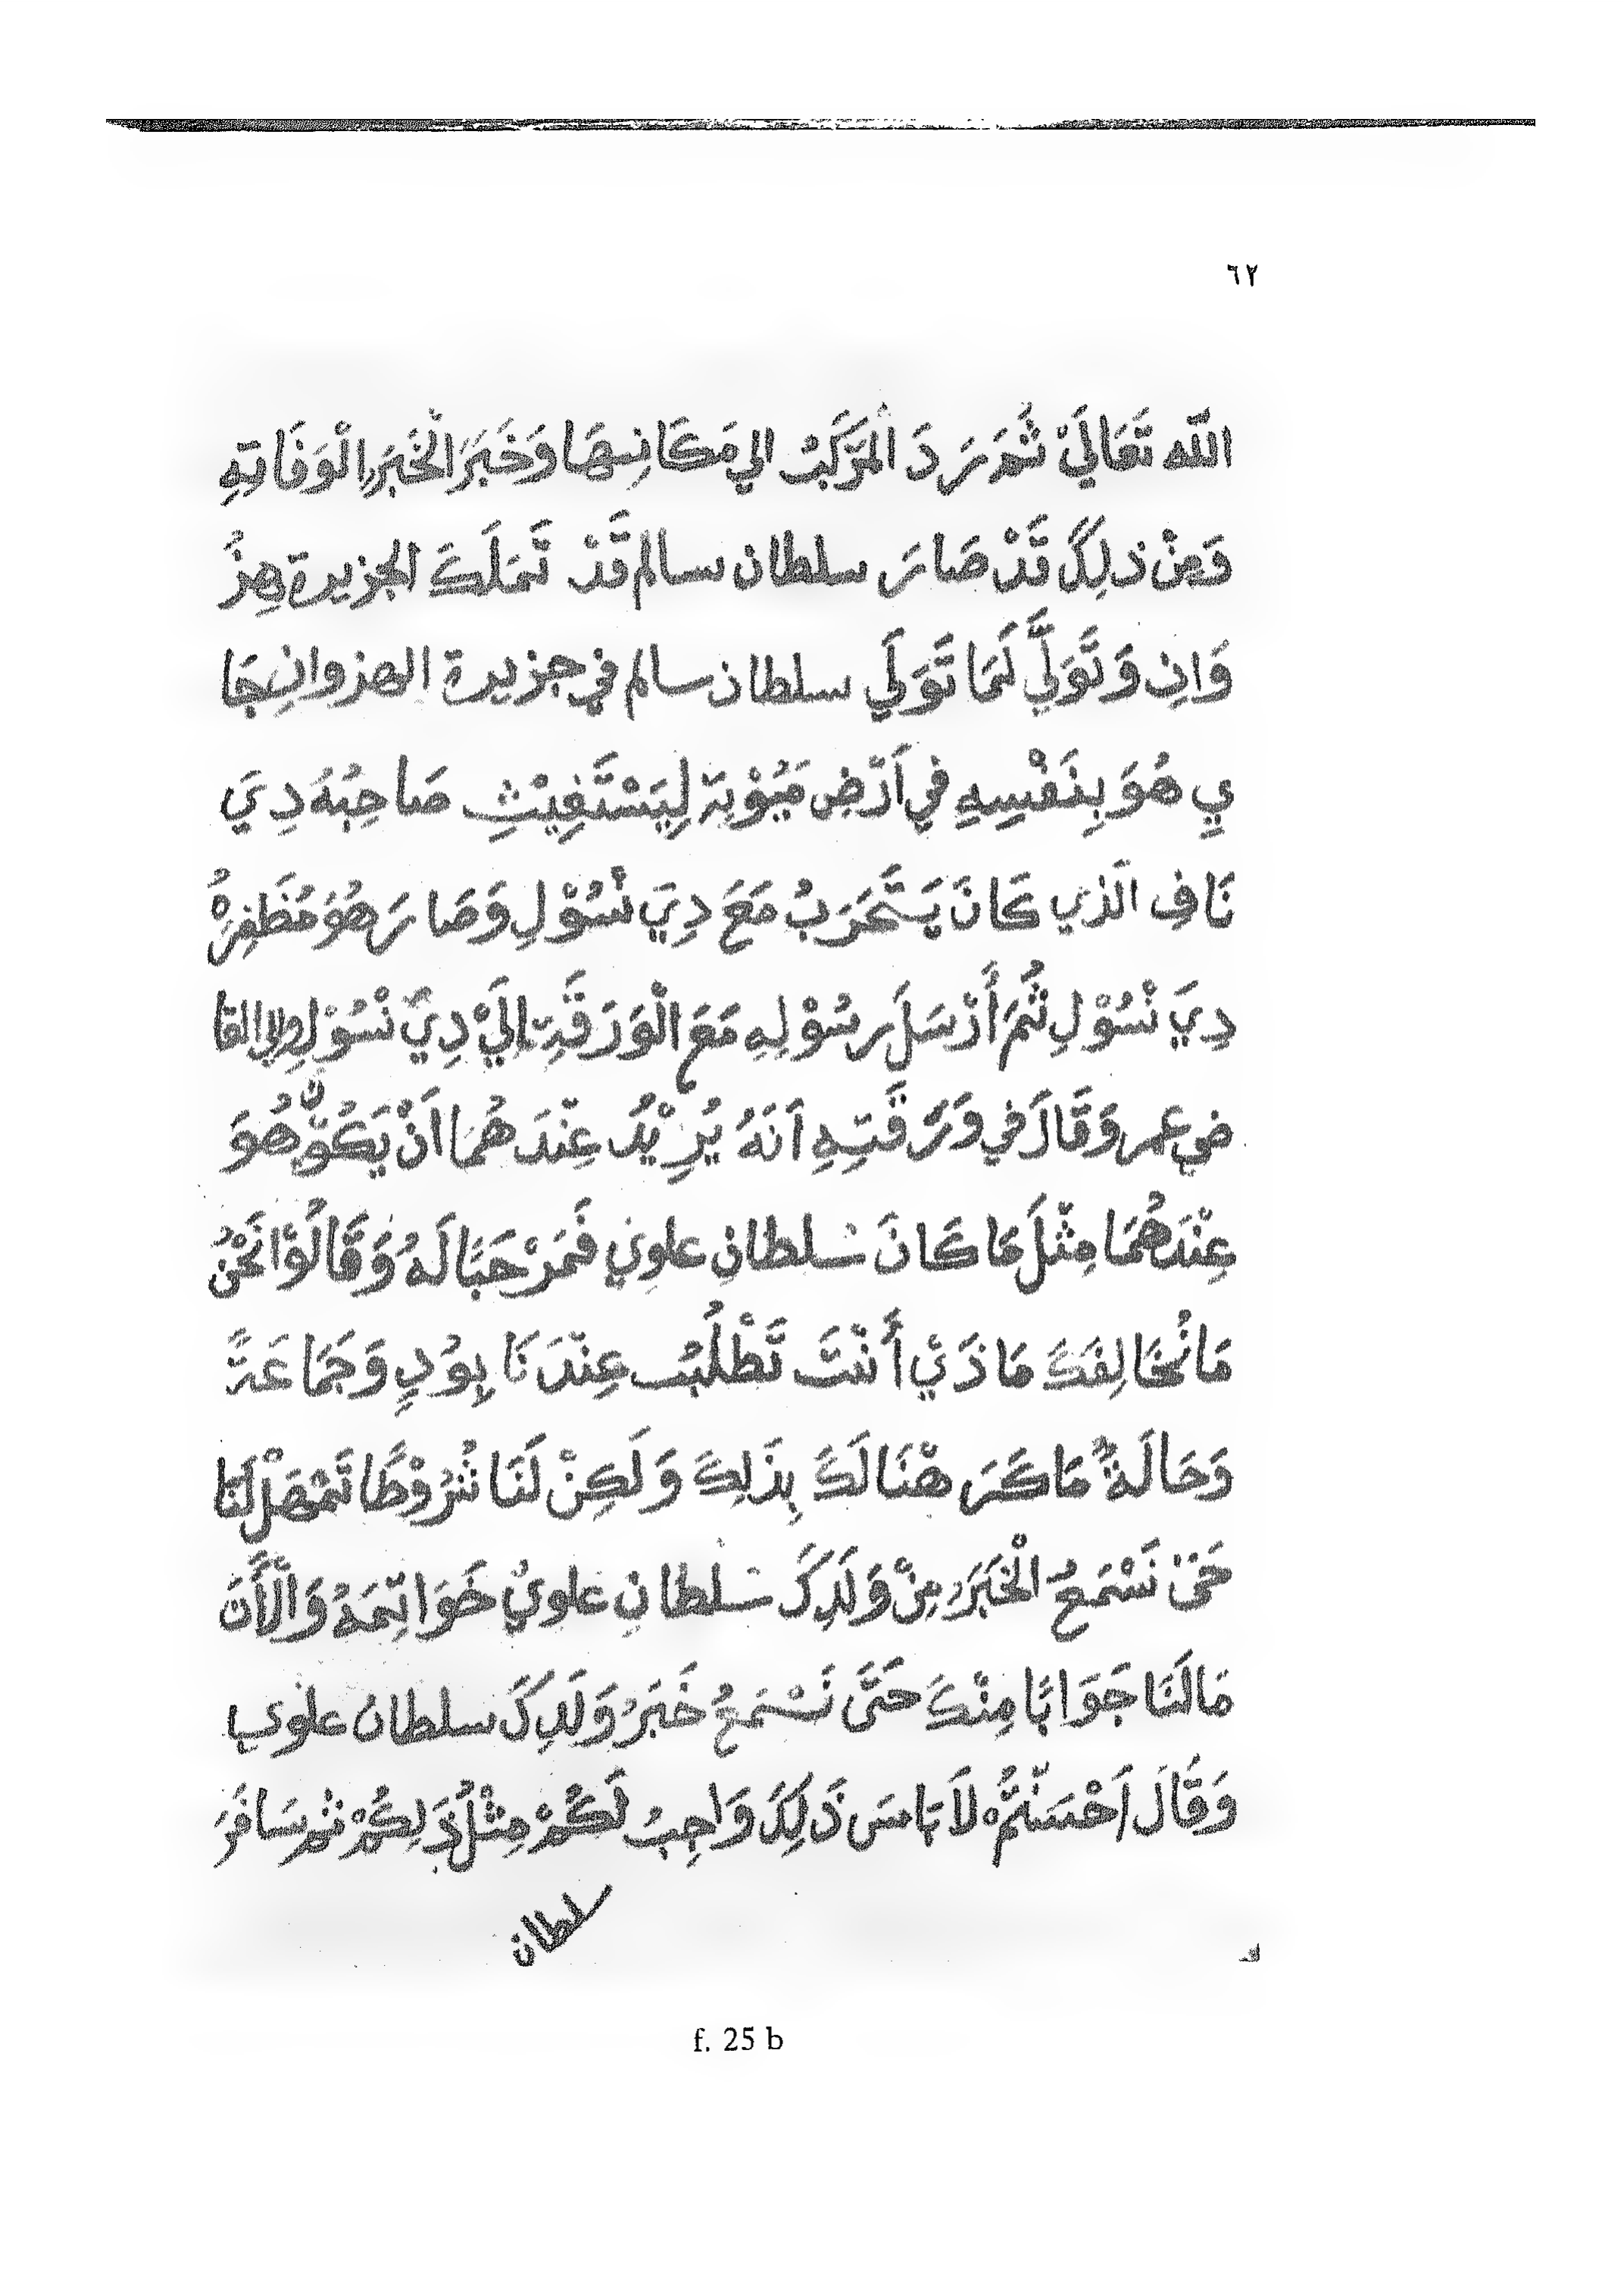 ٦٢
الله تَعَالَيْ ثُمَ رَدَ الْمَرْكَبْ الي مَكَانِهَا وَخَبَرَ الْخَبَرِ الْوَفَاتِهِ
وَمِنْ ذلِكَ قَدْ صَارَ سلطان سالم قَدْ تَمَلَكَ الجزيرة هِزُ
وَانِ وَتَوَلَّي لَمَا تَوَلَي سلطان سالم في جزيرة الهزوانِ جَا
يِ هُوَ بِنَفْسِهِ في اَرْضِ مَيُوْتِة لِيَسْتَغِيْثِ صَاحِبُهُ دِيَ
نَافِ الَذي كَانَ يَتَحَرَبُ مَعَ دِيَ نْسُوْلِ وَصَارَ هُوَ مُظَفِرَهُ
دِيَ نْسُوْلِ ثُمَ أَرْسَلَ رسُوْلِهِ مَعَ الْوَرَقَةِ اِلَيْ دِيَ نْسُوْلِ والي القا
ضي عمر وَقَالَ في وَرَقَتِهِ اَنَهُ يُرِيْدُ عِنْدَ هُمَا اَنْ يَكُوْنَ هُوَ
عِنْدَهُمَا مِثْلَ مَا كَانَ سُلطانِ علوي فَمَرْحَبًا لَهُ وَقَالُوْا نَحْنُ
مَا نُخَالِفَكَ مَا ذَيْ أَنْتَ تَطْلُبْ عِنْدَنَا بِوُدٍ وَجَمَاعَةً
وَحَالَةً مَا كَرَ هْنَا لَكَ بِذَلِكَ وَلَكِنْ لَنَا شُرُوْطًا تَمْهَلْ لَنَا
حَتَىْ نَسْمَعُ الْخَبَرَ مِنْ وَلَدِكَ سُلطانِ علوي خَوَاتِمَهُ وَالْأَنَ
مَالَنَا جَوَابًا مِنْكَ حَتَّى نَسْمَعُ خَبَرُ وَلَدِكَ سلطان علوي
وَقَالَ اَحْسَنْتُمْ لاَ بَاسَ ذَلِكَ وَاجِبُ لَكُمْ مِثْلُ ذَلِكُمْ ثم سَافَرَ
سلطان
f. 25 b